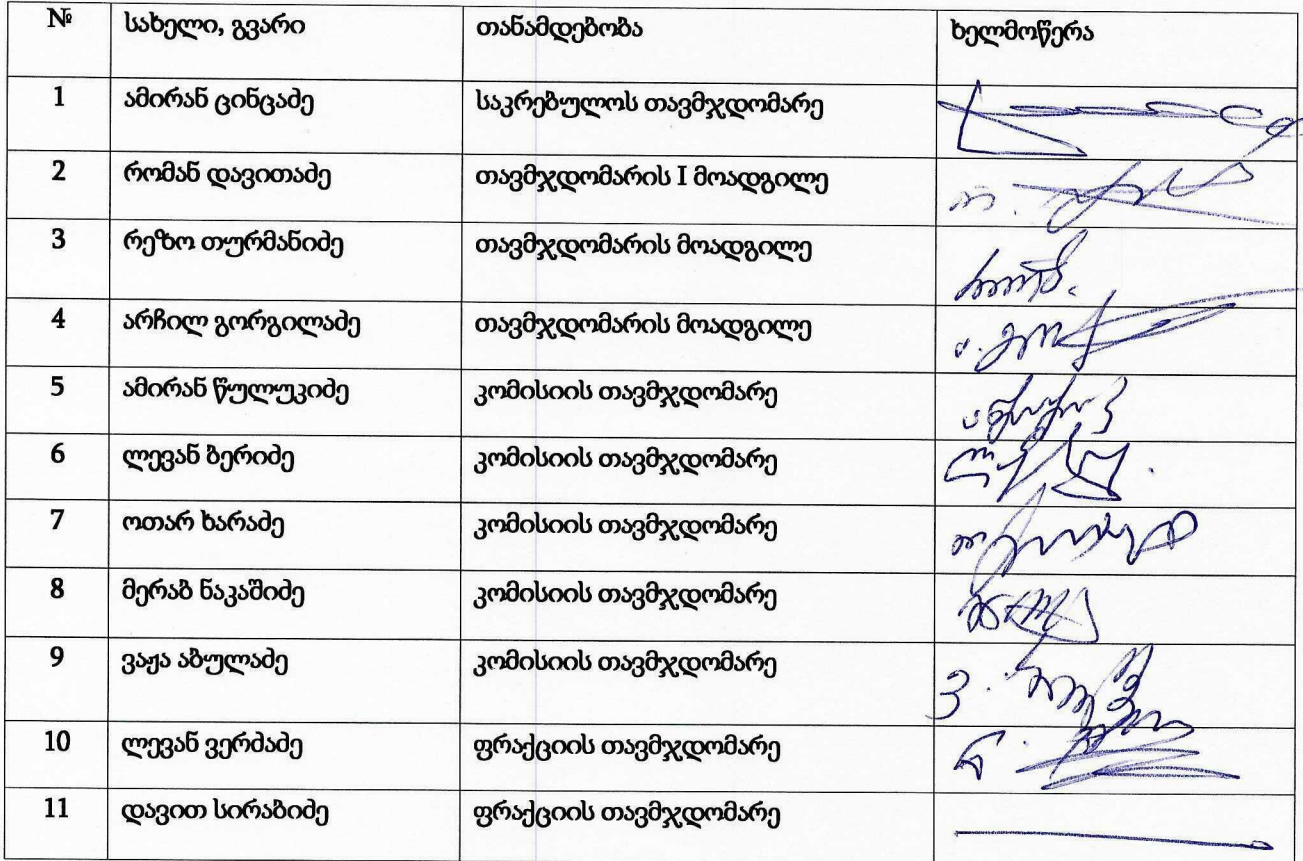 № სახელი, გვარი თანამდებობა ხელმოწერა
1 ამირან ცინცაძე საკრებულოს თავმჯდომარე
2 რომან დავითაძე თავმჯდომარის I მოადგილე
3 რეზო თურმანიძე თავმჯდომარის მოადგილე
4 არჩილ გორგილაძე თავმჯდომარის მოადგილე
5 ამირან წულუკიძე კომისიის თავმჯდომარე
6 ლევან ბერიძე კომისიის თავმჯდომარე
7 ოთარ ხარაძე კომისიის თავმჯდომარე
8 მერაბ ნაკაშიძე კომისიის თავმჯდომარე
9 ვაჟა აბულაძე კომისიის თავმჯდომარე
10 ლევან ვერძაძე ფრაქციის თავმჯდომარე
11 დავით სირაბიძე ფრაქციის თავმჯდომარე